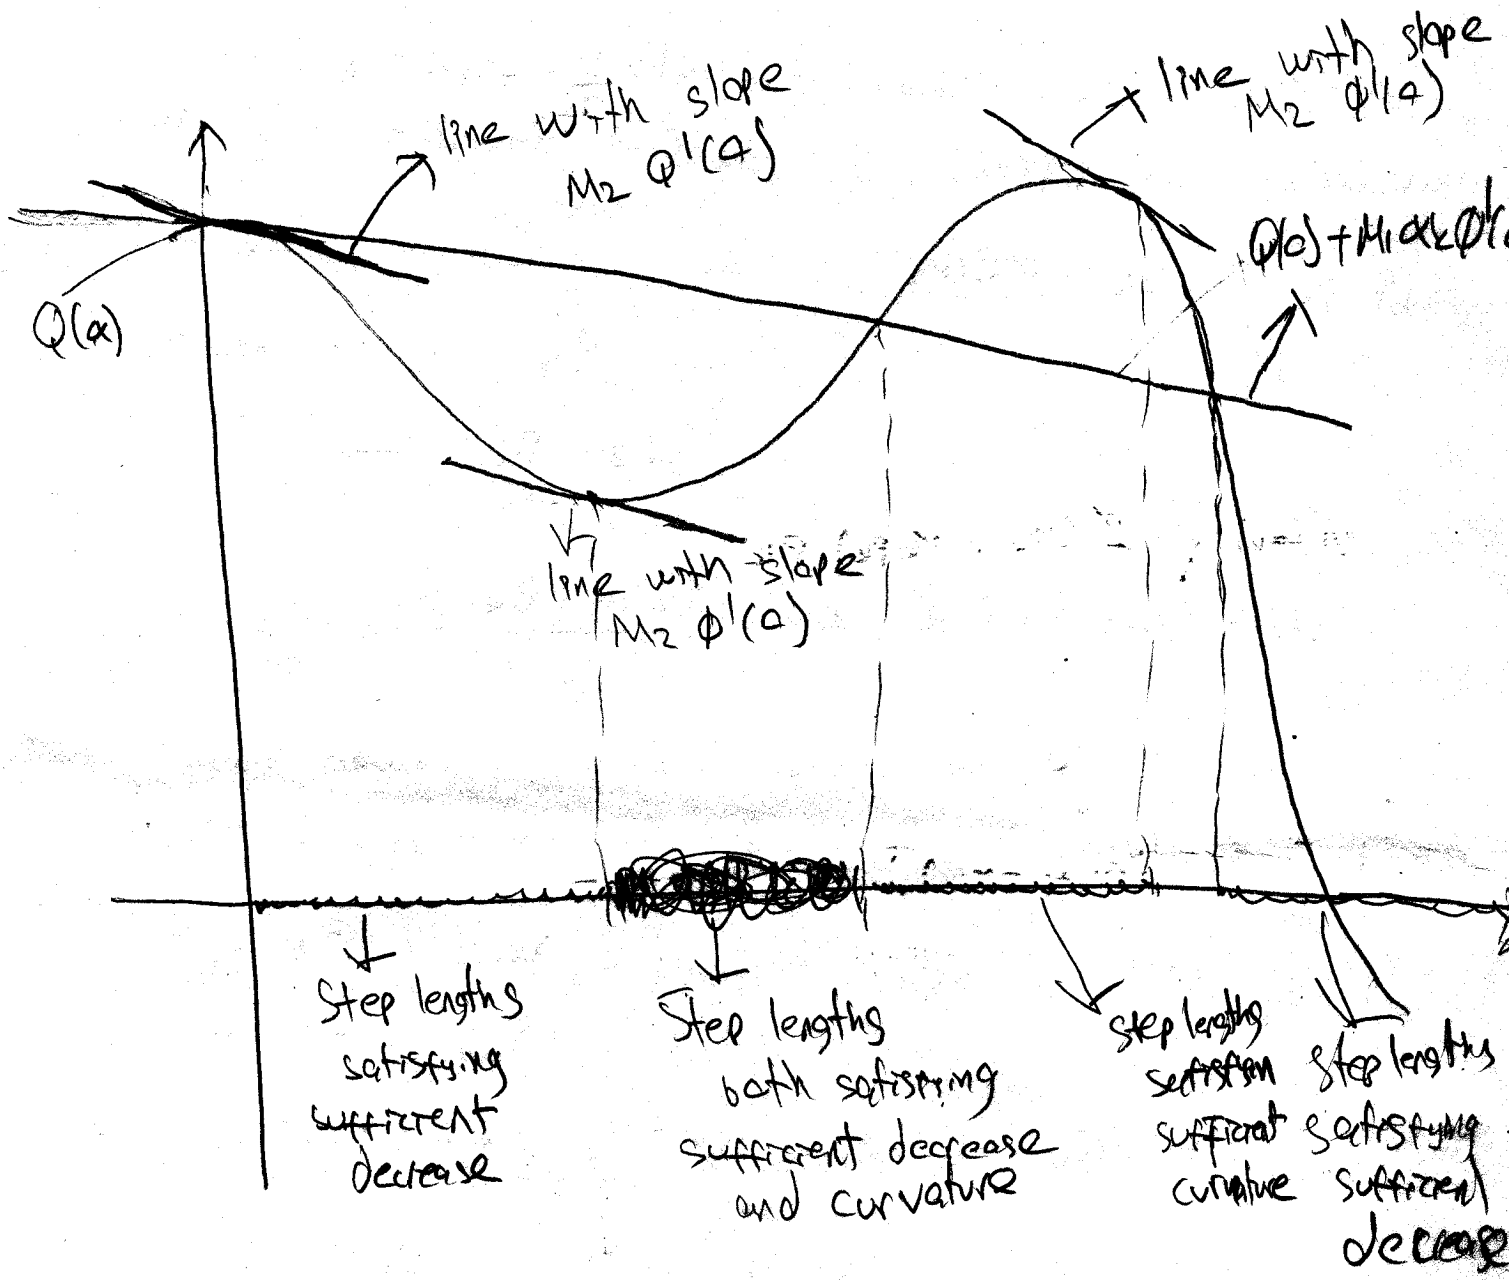 line with slope
M2 φ'(0)
line with slope
M2 φ'(0)
φ(0) + M1 αk φ'(
φ(α)
line with slope
M2 φ'(0)
Step lengths
satisfying
sufficient
decrease
Step lengths
both satisfying
sufficient decrease
and curvature
step lengths
sufficient
curvature
step lengths
satisfying
sufficient
decrease